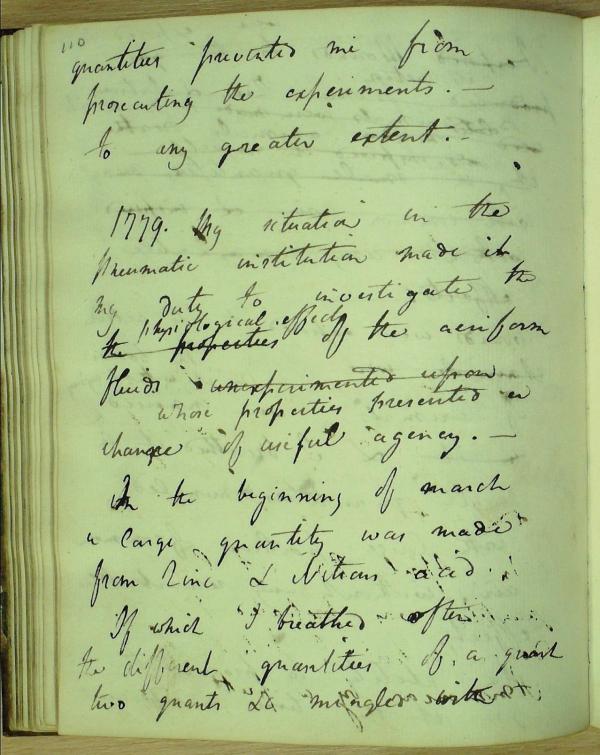 110
quantities prevented me from
prosecuting the experiments. —
to any greater extent. –
1779. My situation in the
pneumatic institution made it
my duty to investigate the
physiological effects
the properties of the aeriform
fluids unexperimented upon
whose properties presented a
chance of useful agency. —
In the beginning of march
a large quantity was made
from zinc & Nitrous acid.
Of which I breathed often
the different quantities of a quart
two quarts &c mingled with